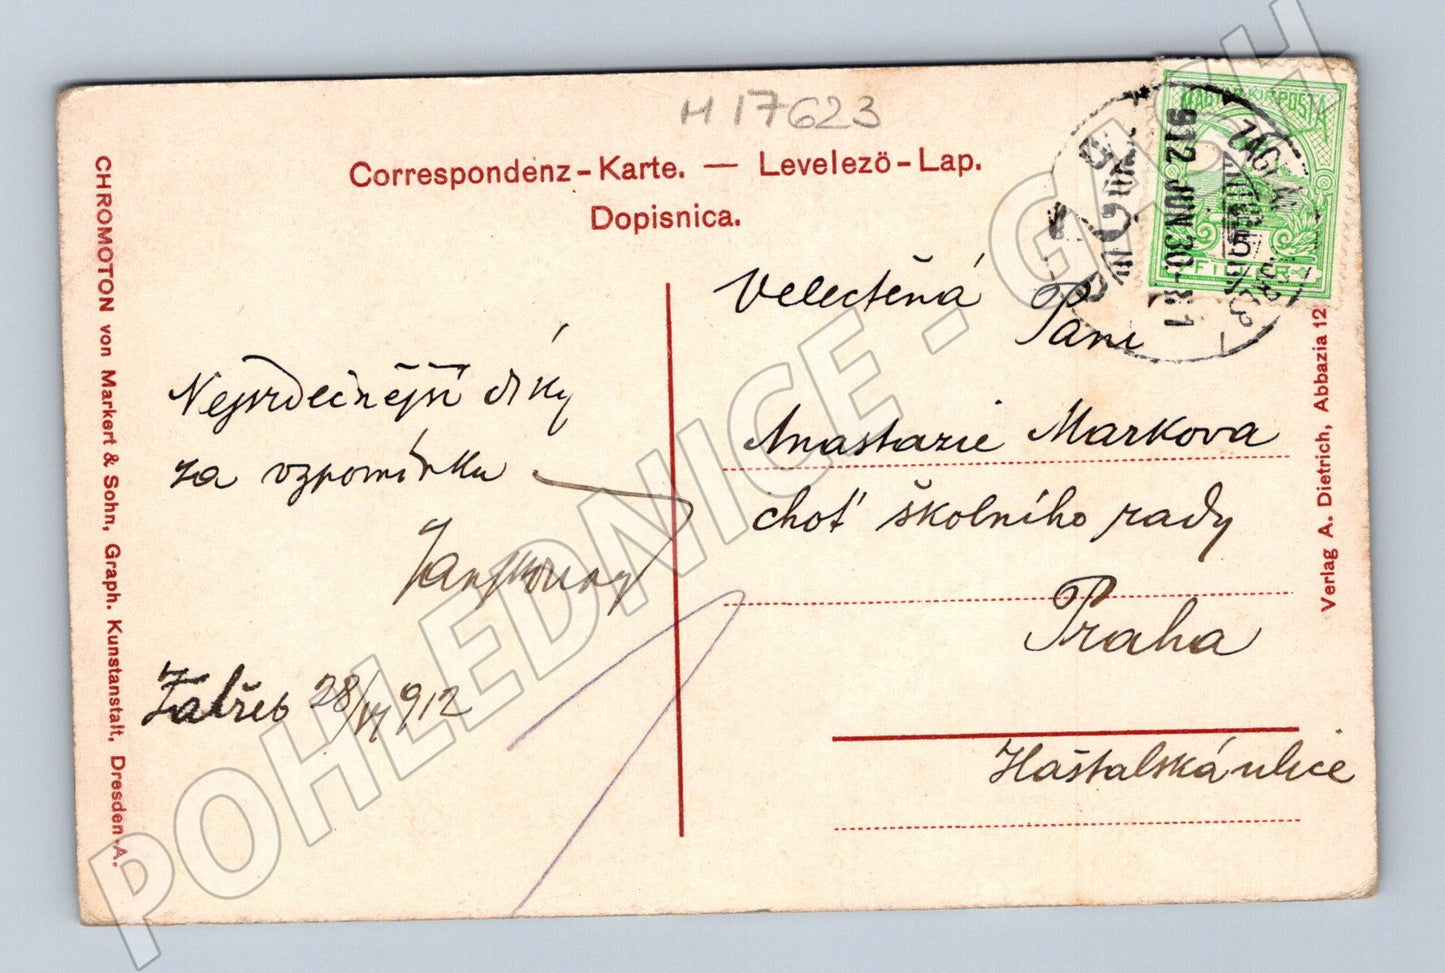 H 17623
Correspondenz-Karte. — Levelezö-Lap.
Dopisnica.
MAGYAR KIR. POSTA
FILLER
ZAGREB
912 JUN. 30
Velectěná
Paní
Anastazie Markova
choť školního rady
Praha
Haštalská ulice
Nejsrdečnější díky
za vzpomínku
Zábřeb 28/VI 912
CHROMOTON von Markert & Sohn, Graph. Kunstanstalt, Dresden-A.
Verlag A. Dietrich, Abbazia 12
POHLEDNICE - GASH